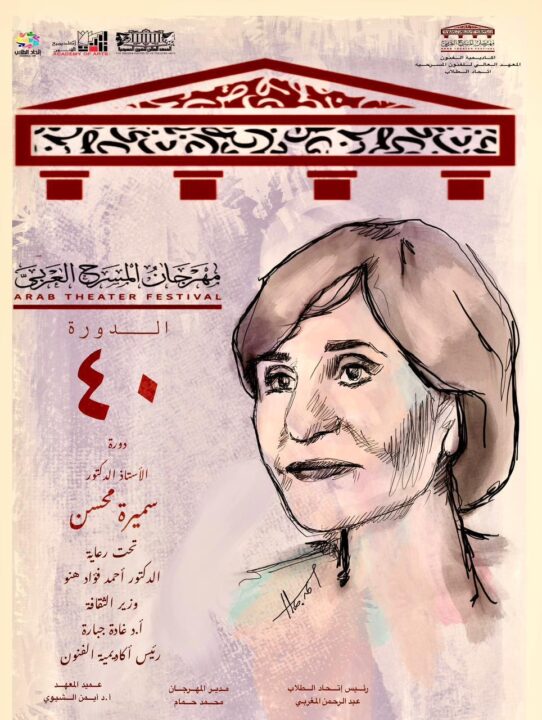 مهرجان المسرح العربي
أكاديمية الفنون
المعهد العالي للفنون المسرحية
اتحاد الطلاب
ACADEMY OF ARTS
مهرجان المسرح العربي
ARAB THEATER FESTIVAL
الدورة
٤٠
دورة
الأستاذ الدكتور
سميرة محسن
تحت رعاية
الدكتور أحمد فؤاد هنو
وزير الثقافة
أ.د غادة جبارة
رئيس أكاديمية الفنون
عميد المعهد
أ.د أيمن الشيوي
مدير المهرجان
محمد حمام
رئيس إتحاد الطلاب
عبد الرحمن المغربي